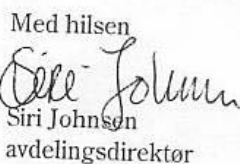 Med hilsen
Siri Johnsen
Siri Johnsen
avdelingsdirektør